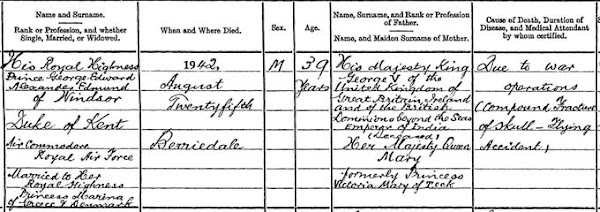 Name and Surname.
Rank or Profession, and whether
Single, Married, or Widowed.
When and Where Died.
Sex.
Age.
Name, Surname, and Rank or Profession
of Father.
Name, and Maiden Surname of Mother.
Cause of Death, Duration of
Disease, and Medical Attendant
by whom certified.
His Royal Highness
Prince George Edward
Alexander Edmund
of Windsor
Duke of Kent
Air Commodore
Royal Air Force
Married to Her
Royal Highness
Princess Marina
of Greece & Denmark
1942,
August
Twentyfifth
Berriedale
M
39
Years
His Majesty King
George V of the
United Kingdom of
Great Britain, Ireland
and of the British
Dominions beyond the Seas
Emperor of India
(Deceased)
Her Majesty Queen
Mary
formerly Princess
Victoria Mary of Teck
Due to war
operations
(Compound Fracture
of Skull - Flying
Accident)